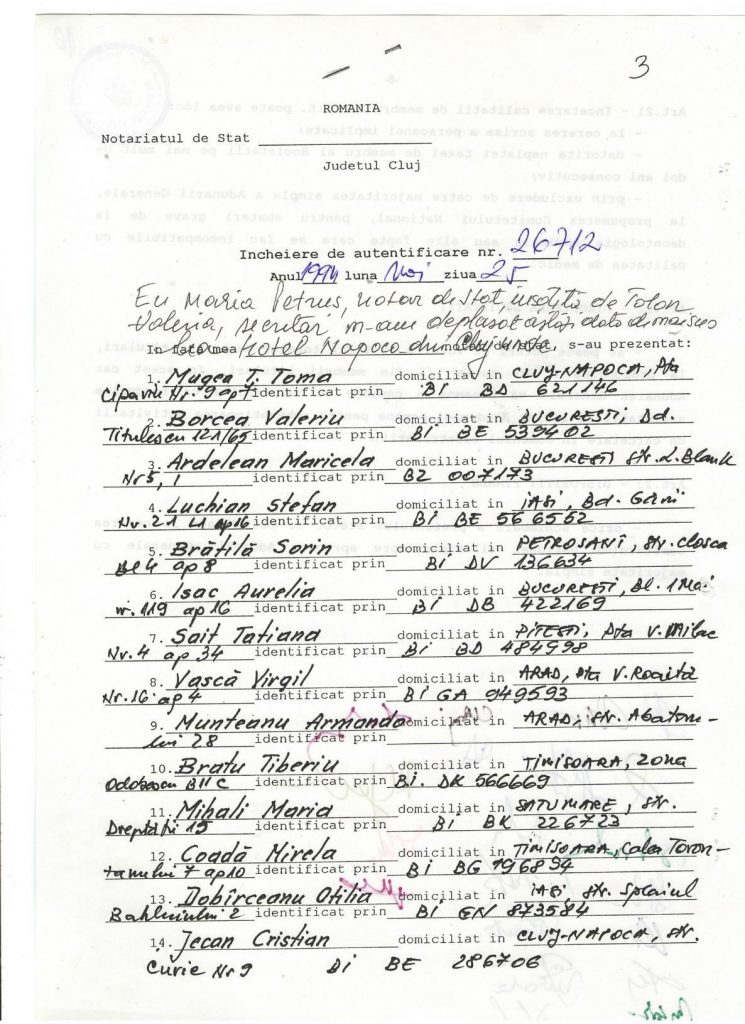 3
ROMANIA
Notariatul de Stat
Judetul Cluj
Incheiere de autentificare nr. 26712
Anul 1994 luna Mai ziua 25
Eu Maria Petrus, notar de stat, insotita de
Valeria, secretar m-am deplasat astazi data de mai sus
In fata mea Hotel Napoca din Cluj-Napoca notar de stat, s-au prezentat:
1. Mugea T. Toma domiciliat in CLUJ-NAPOCA, Pta
Cipariu Nr. 9 ap 7 identificat prin BI BD 621146
2. Borcea Valeriu domiciliat in BUCURESTI, Bd.
Titulescu 121/65 identificat prin BI BE 539402
3. Ardelean Maricela domiciliat in BUCURESTI Str. L. Blank
Nr 5, 1 identificat prin BZ 007173
4. Luchian Stefan domiciliat in IASI, Bd. Garii
Nr. 21 L1 ap 16 identificat prin BI BE 566562
5. Brătilă Sorin domiciliat in PETROSANI, Str. Closca
Bl 4 ap 8 identificat prin BI DV 136634
6. Isac Aurelia domiciliat in BUCURESTI, Bl. 1 Mai
nr. 119 ap 16 identificat prin BI DB 422169
7. Sait Tatiana domiciliat in PITESTI, Pta V. Milea
Nr. 4 ap 34 identificat prin BI BD 484998
8. Vască Virgil domiciliat in ARAD, Pta V. Roaita
Nr. 16 ap 4 identificat prin BI GA 949593
9. Munteanu Armando domiciliat in ARAD, Str. Abatoru-
lui 28 identificat prin
10. Bratu Tiberiu domiciliat in TIMISOARA, Zona
Odobescu B11C identificat prin BI. DK 566669
11. Mihali Maria domiciliat in SATUMARE, Str.
Dreptatii 15 identificat prin BI BK 226723
12. Coadă Mirela domiciliat in TIMISOARA Calea Toron-
tanului 7 ap 10 identificat prin BI BG 796894
13. Dobîrceanu Otilia domiciliat in IASI, Str. Splaiul
Bahluiului 2 identificat prin BI GN 873584
14. Jecan Cristian domiciliat in CLUJ-NAPOCA, Str.
Curie Nr 9 BI BE 286706